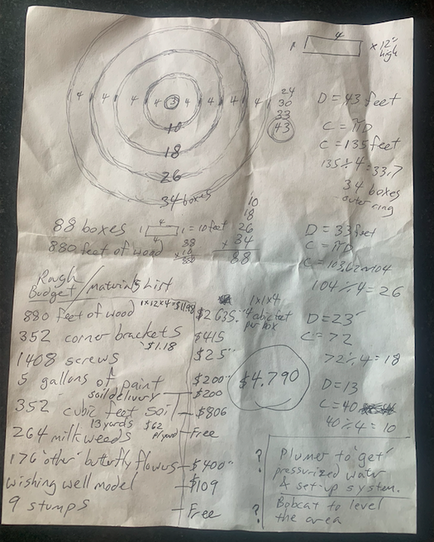 4
1
× 12" high
4 4 4 4 3 4 4 4 4
10
18
26
34 boxes
24
30
33
43
D = 43 feet
C = πD
C = 135 feet
135 ÷ 4 = 33.7
34 boxes
outer ring
10
18
26
+ 34
88
88 boxes
1 4 1 = 10 feet
4
880 feet of wood
88
× 10
880
D = 33 feet
C = πD
C = 103.62 or 104
104 ÷ 4 = 26
Rough
Budget / Materials List
1x12x4 = $11.98
880 feet of wood $2635.
1x1x4
4 cubic feet
per box
352 corner brackets $415
$1.18
1408 screws $25
5 gallons of paint $200
soil delivery $200
352 cubic feet soil — $806
13 yards $62 p/yard
264 milk weeds — Free
176 "other" butterfly flowers — $400
wishing well model $109
9 stumps — Free
$4.790
D = 23'
C = 72
72 ÷ 4 = 18
D = 13
C = 40
40 ÷ 4 = 10
? Plumer to get
pressurized water
& set-up system.
? Bobcat to level
the area